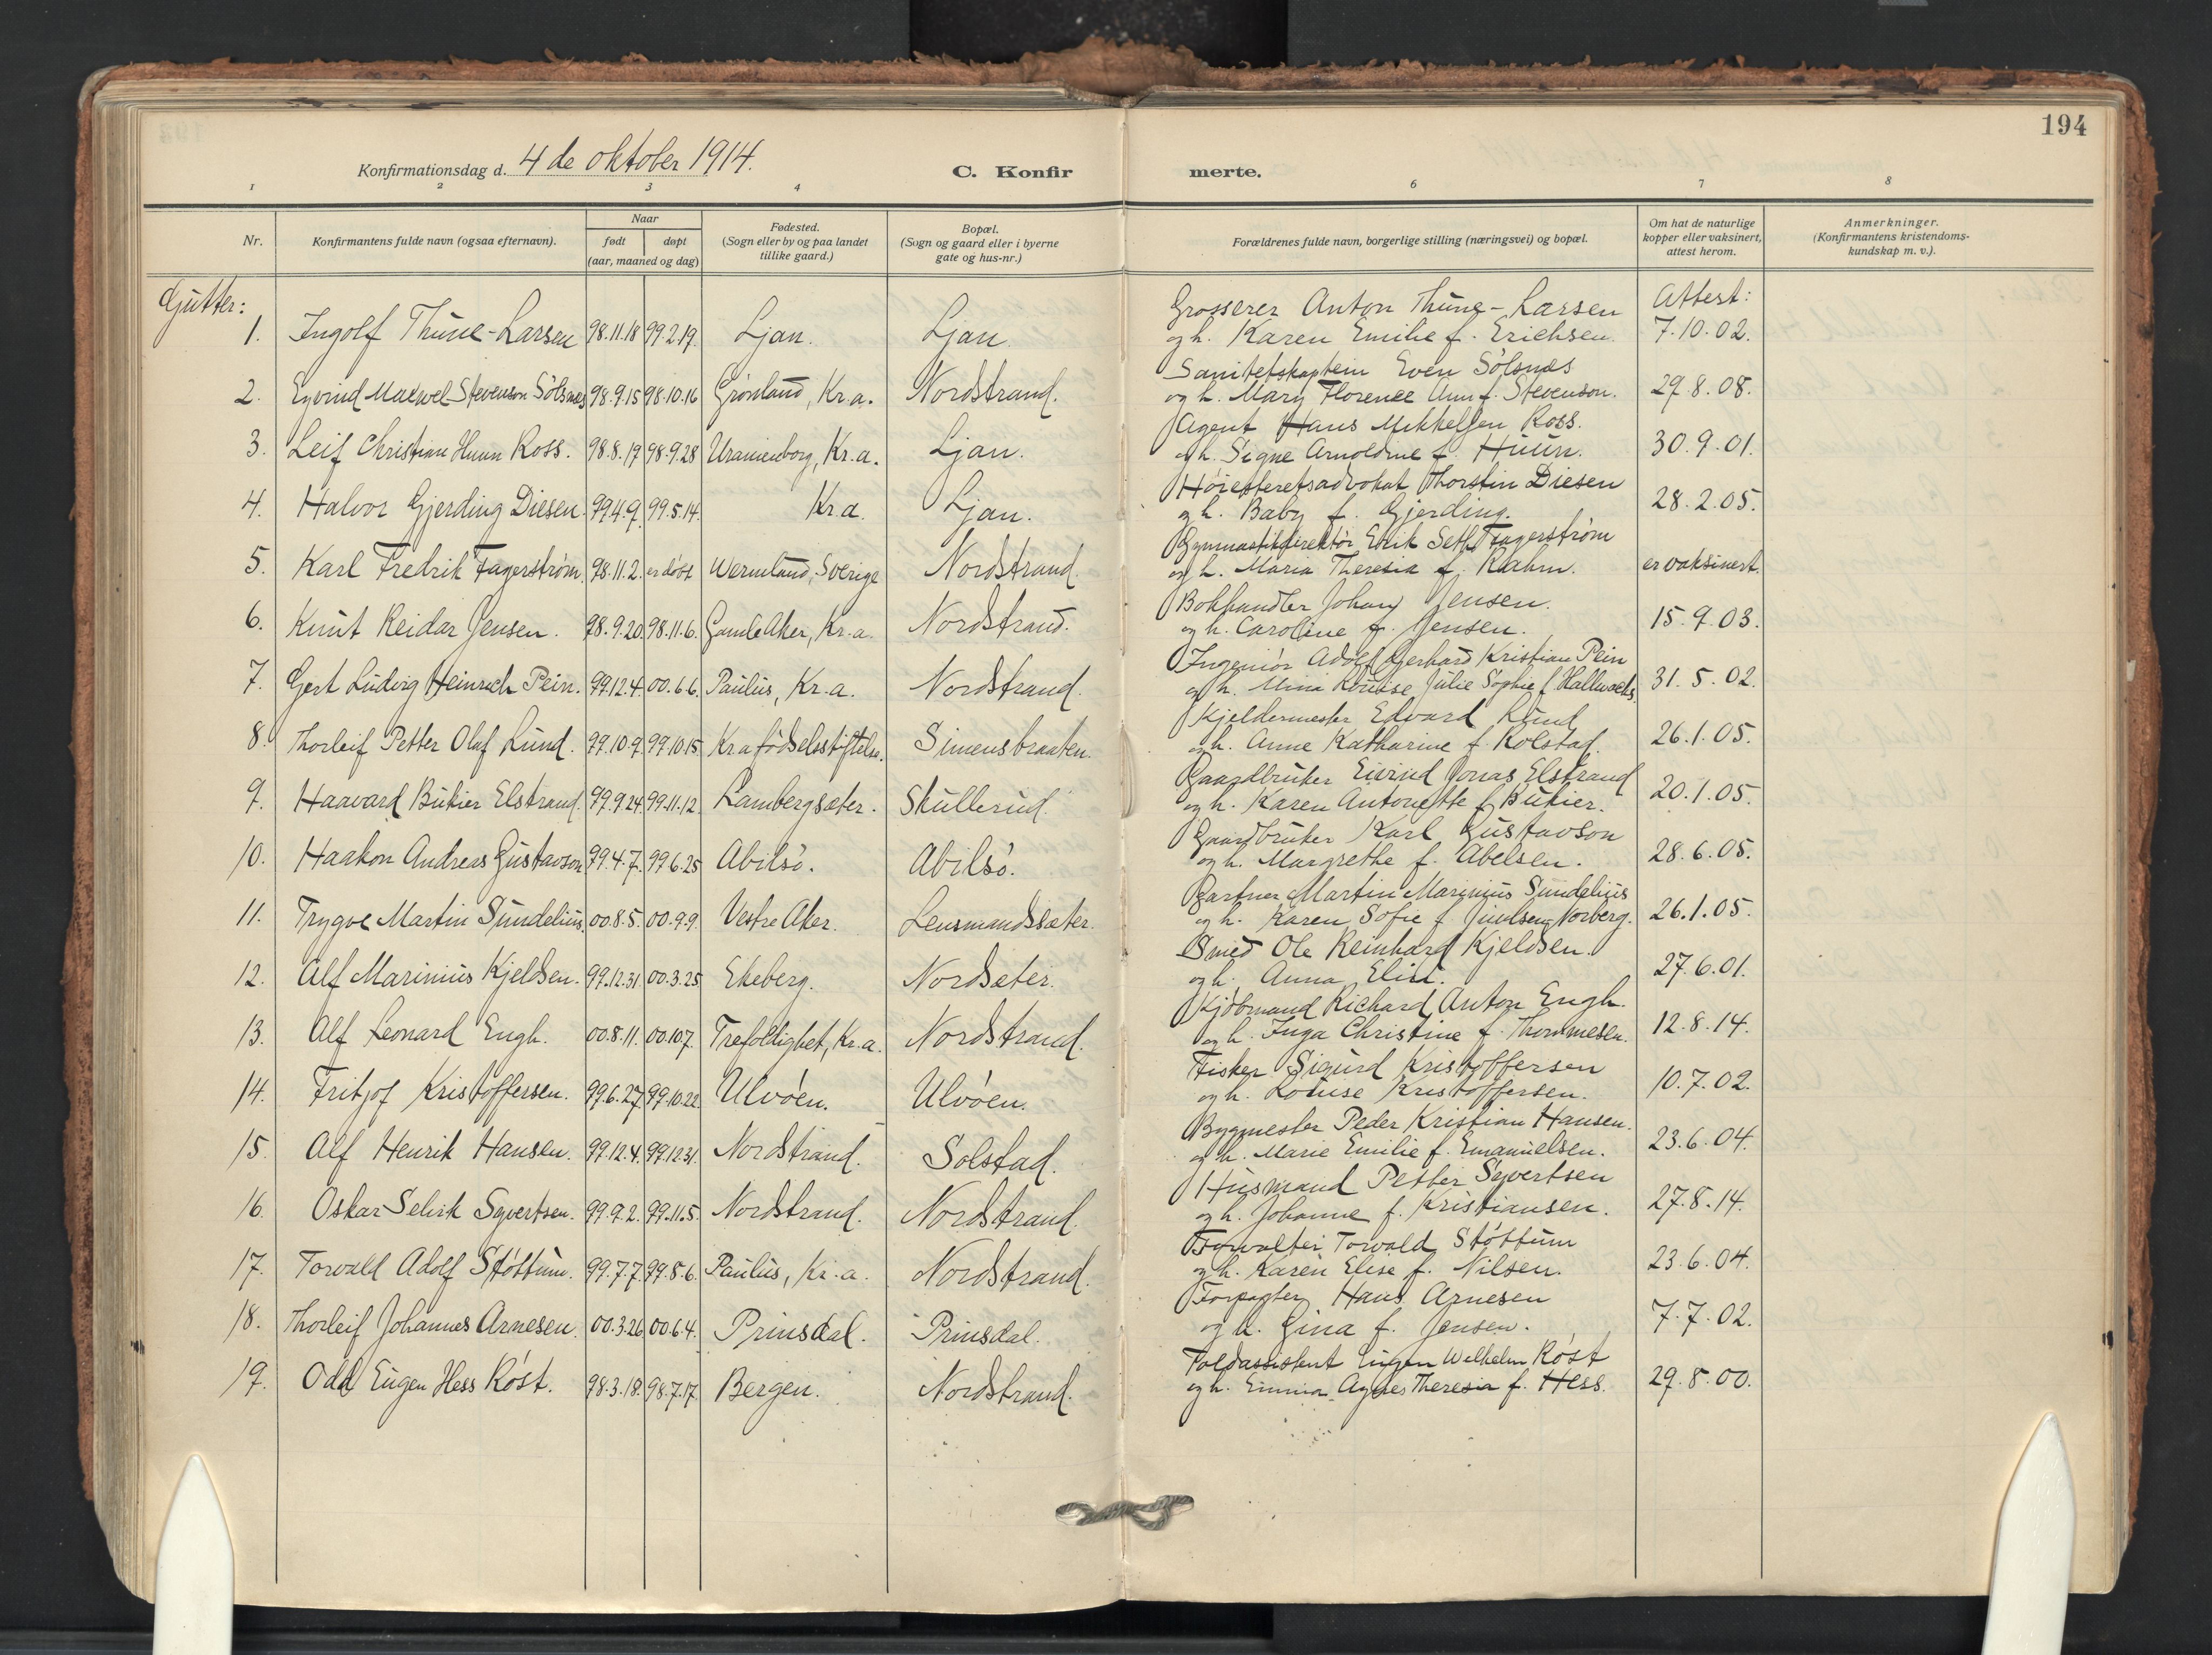 194
Konfirmationsdag d. 4 de oktober 1914. C. Konfirmerte.
1 2 3 4 6 7 8
Nr. Konfirmantens fulde navn (ogsaa efternavn). Naar født døpt (aar, maaned og dag) Fødested. (Sogn eller by og paa landet tillike gaard.) Bopæl. (Sogn og gaard eller i byerne gate og hus-nr.) Forældrenes fulde navn, borgerlige stilling (næringsvei) og bopæl. Om hat de naturlige kopper eller vaksinert, attest herom. Anmerkninger. (Konfirmantens kristendomskundskap m. v.).
Gutter:
Grosserer Anton Thune-Larsen Attest:
1. Ingolf Thune-Larsen 98.11.18 99.2.19. Ljan. Ljan. og h. Karen Emilie f. Erichsen. 7.10.02.
Sanitetskaptein Even Sølsnæs
2. Eyvind Maxwel Stevenson Sølsnæs 98.9.15 98.10.16 Grønland, Kr.a. Nordstrand. og h. Mary Florence Ann f. Stevenson. 29.8.08.
Agent Hans Mikkelsen Ross.
3. Leif Christian Huun Ross. 98.8.19 98.9.28 Uranienborg, Kr.a. Ljan. og h. Signe Arnoldine f. Huun. 30.9.01.
Høiesteretsadvokat Thorstin Diesen
4. Halvor Gjerding Diesen. 99.4.9. 99.5.14. Kr.a. Ljan. og h. Baby f. Gjerding. 28.2.05.
Gymnastikdirektør Erik Seth Fagerstrøm
5. Karl Fredrik Fagerstrøm. 98.11.2. er døbt Wermland, Sverige Nordstrand. og h. Maria Theresia f. Rahm. er vaksinert.
Bokhandler Johan Jensen.
6. Knut Reidar Jensen. 98.9.20. 98.11.6. Gamle Aker, Kr.a. Nordstrand. og h. Caroline f. Jensen. 15.9.03.
Ingeniør Adolf Gerhard Kristian Pein
7. Gert Ludvig Heinrich Pein. 99.12.4. 00.6.6. Paulus, Kr.a. Nordstrand. og h. Mina Louise Julie Sophie f. Hallwachs. 31.5.02.
Kjeldermester Edvard Lund
8. Thorleif Petter Olaf Lund. 99.10.9. 99.10.15 Kr.a fødselsstiftelse. Simensbraaten. og h. Anne Katharine f. Rolstad. 26.1.05.
Gaardbruker Eivind Jonas Elstrand
9. Haavard Bukier Elstrand. 99.9.24. 99.11.12. Lambergsæter. Skullerud. og h. Karen Antonette f. Bukier. 20.1.05.
Gaardbruker Karl Gustavson
10. Haakon Andreas Gustavson 99.4.7. 99.6.25 Abilsø. Abilsø. og h. Margrethe f. Abelsen. 28.6.05.
Gartner Martin Marinius Sundelius
11. Trygve Martin Sundelius. 00.8.5. 00.9.9. Vestre Aker. Lensmandssæter. og h. Karen Sofie f. Norberg. 26.1.05.
Smed Ole Reinhard Kjeldsen.
12. Alf Marinius Kjeldsen. 99.12.31. 00.3.25 Ekeberg. Nordsæter. og h. Anna Elise. 27.6.01.
Kjøbmand Richard Anton Engh.
13. Alf Leonard Engh. 00.8.11. 00.10.7. Trefoldighet, Kr.a. Nordstrand. og h. Inga Christine f. Thommesen. 12.8.14.
Fisker Sigurd Kristoffersen
14. Fritjof Kristoffersen. 99.6.27. 99.10.22. Ulvøen. Ulvøen. og h. Louise Kristoffersen. 10.7.02.
Bygmester Peder Kristian Hansen.
15. Alf Henrik Hansen. 99.12.4. 99.12.31. Nordstrand. Solstad. og h. Marie Emilie f. Emanuelsen. 23.6.04.
Husmand Petter Syvertsen
16. Oskar Selvik Syvertsen. 99.9.2. 99.11.5. Nordstrand. Nordstrand. og h. Johanne f. Kristiansen. 27.8.14.
Forvalter Torvald Støttum
17. Torvald Adolf Støttum. 99.7.7. 99.8.6. Paulus, Kr.a. Nordstrand. og h. Karen Elise f. Nilsen. 23.6.04.
Forpagter Hans Arnesen
18. Thorleif Johannes Arnesen. 00.3.26 00.6.4. Prinsdal. Prinsdal. og h. Gina f. Jensen. 7.7.02.
Toldassistent Eugen Wilhelm Røst
19. Odd Eugen Hess Røst. 98.3.18. 98.7.17. Bergen. Nordstrand. og h. Emma Agnes Theresia f. Hess. 29.8.00.